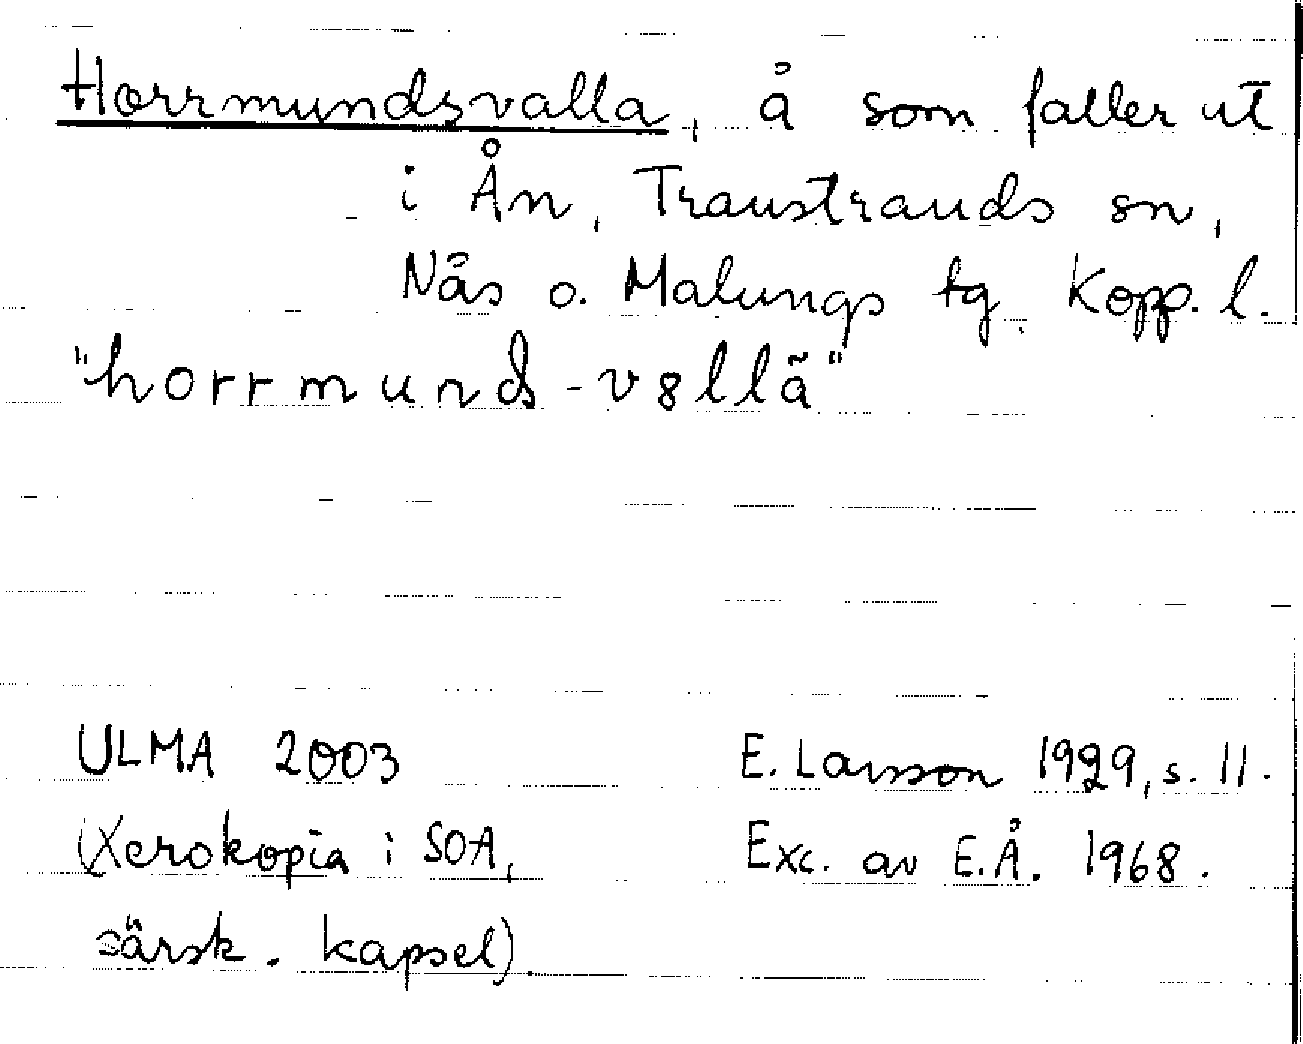 Horrmundsvalla, å som faller ut
i Ån, Transtrands sn,
Nås o. Malungs tg. Kopp. l.
"horrmunds-v8llã"
ULMA 2003 E. Larsson 1929, s. 11.
(Xerokopia i SOA, Exc. av E.Å. 1968.
särsk. kapsel).